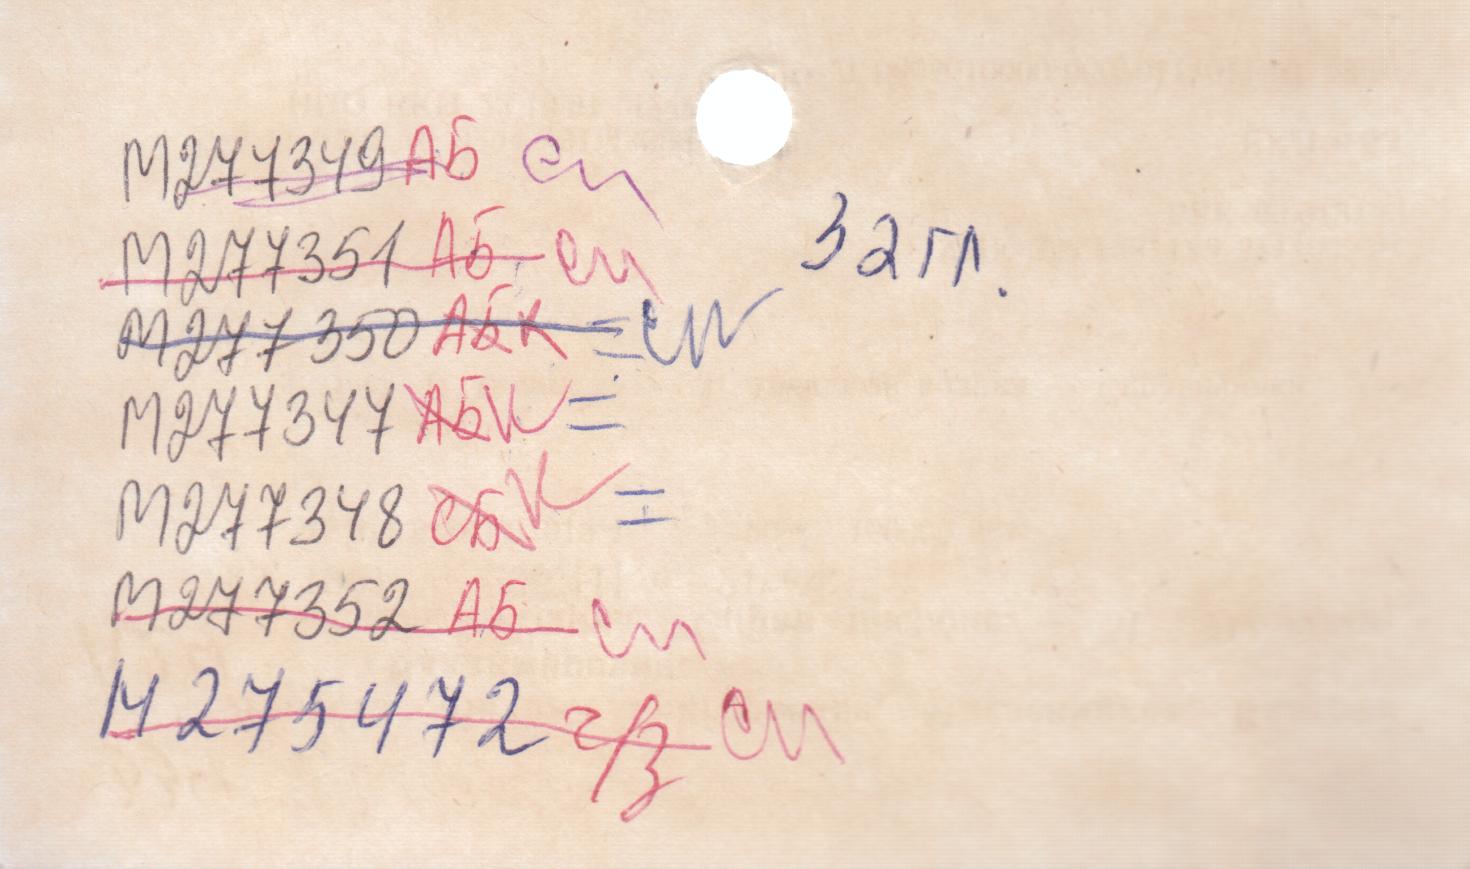 М277349 АБ сп
М277351 АБ сп
32 гл.
М277350 АБК = сп
М277347 АБК =
М277348 СБК =
М277352 АБ сп
М275472 г/з сп